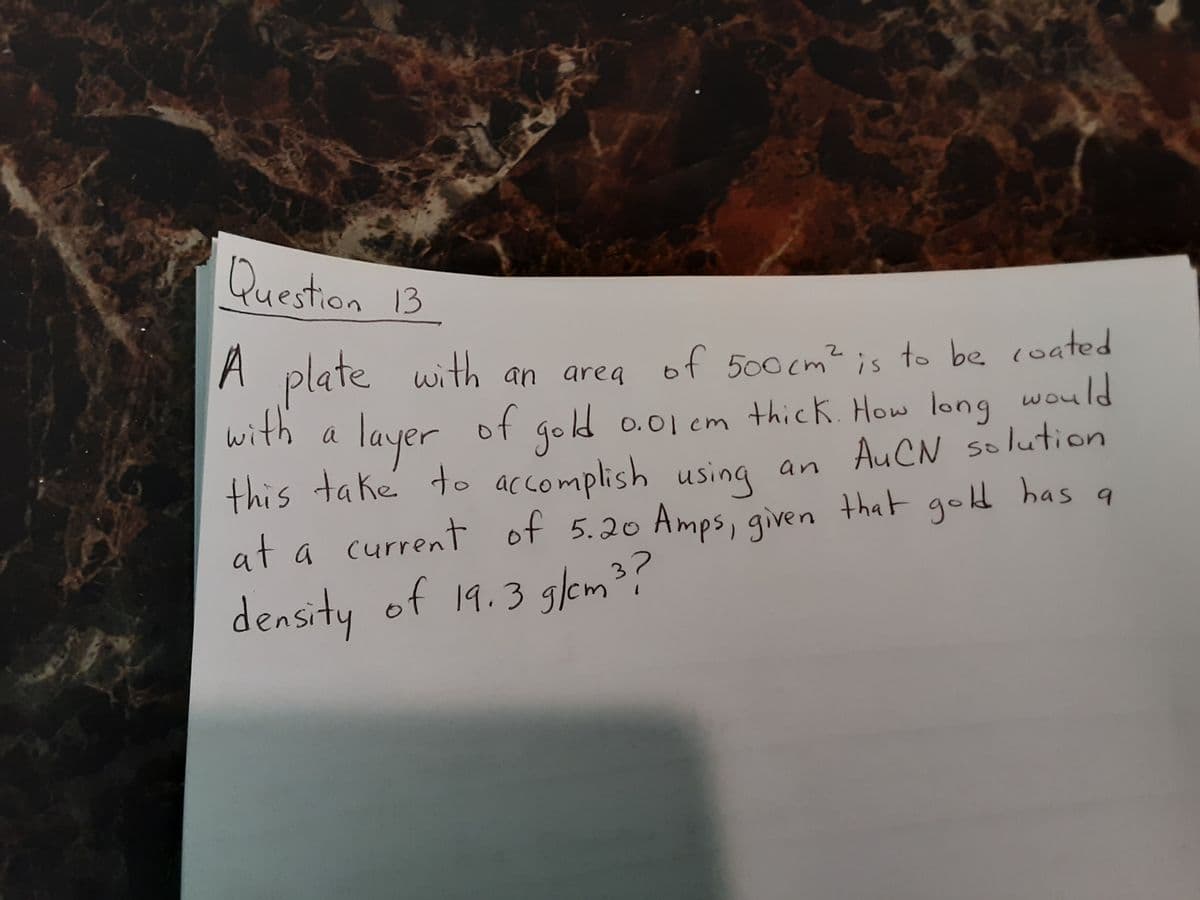 Question 13
A plate with an area of 500cm² is to be coated
with a layer of gold 0.01 cm thick. How long would
this take to accomplish using an AuCN solution
at a current of 5.20 Amps, given that gold has a
density of 19.3 g/cm³?